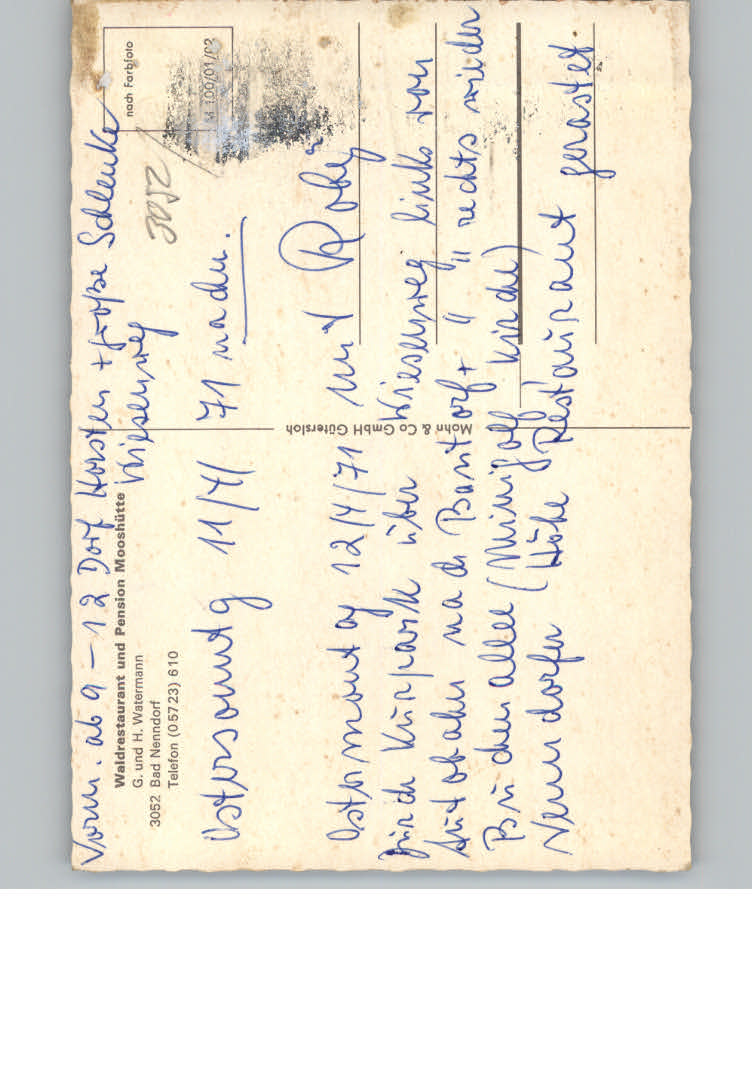 Vorm. ab 9 – 12 Dorf Horsten + große Schlenke
Wiesenweg
Waldrestaurant und Pension Mooshütte
G. und H. Watermann
3052 Bad Nenndorf
Telefon (05723) 610
nach Farbfoto
M 100/01/82
3052
Ostersonntg 11/4/ 71 nachm.
Mohn & Co GmbH Gütersloh
Ostermontag 12/4/71 mit
Kurpark über Wiesenweg links von
Autobahn nach Bantorf + " " rechts wieder
Buchenallee (Minigolf Kirche)
Nenndorfer Höhe Restaurant gerastet.